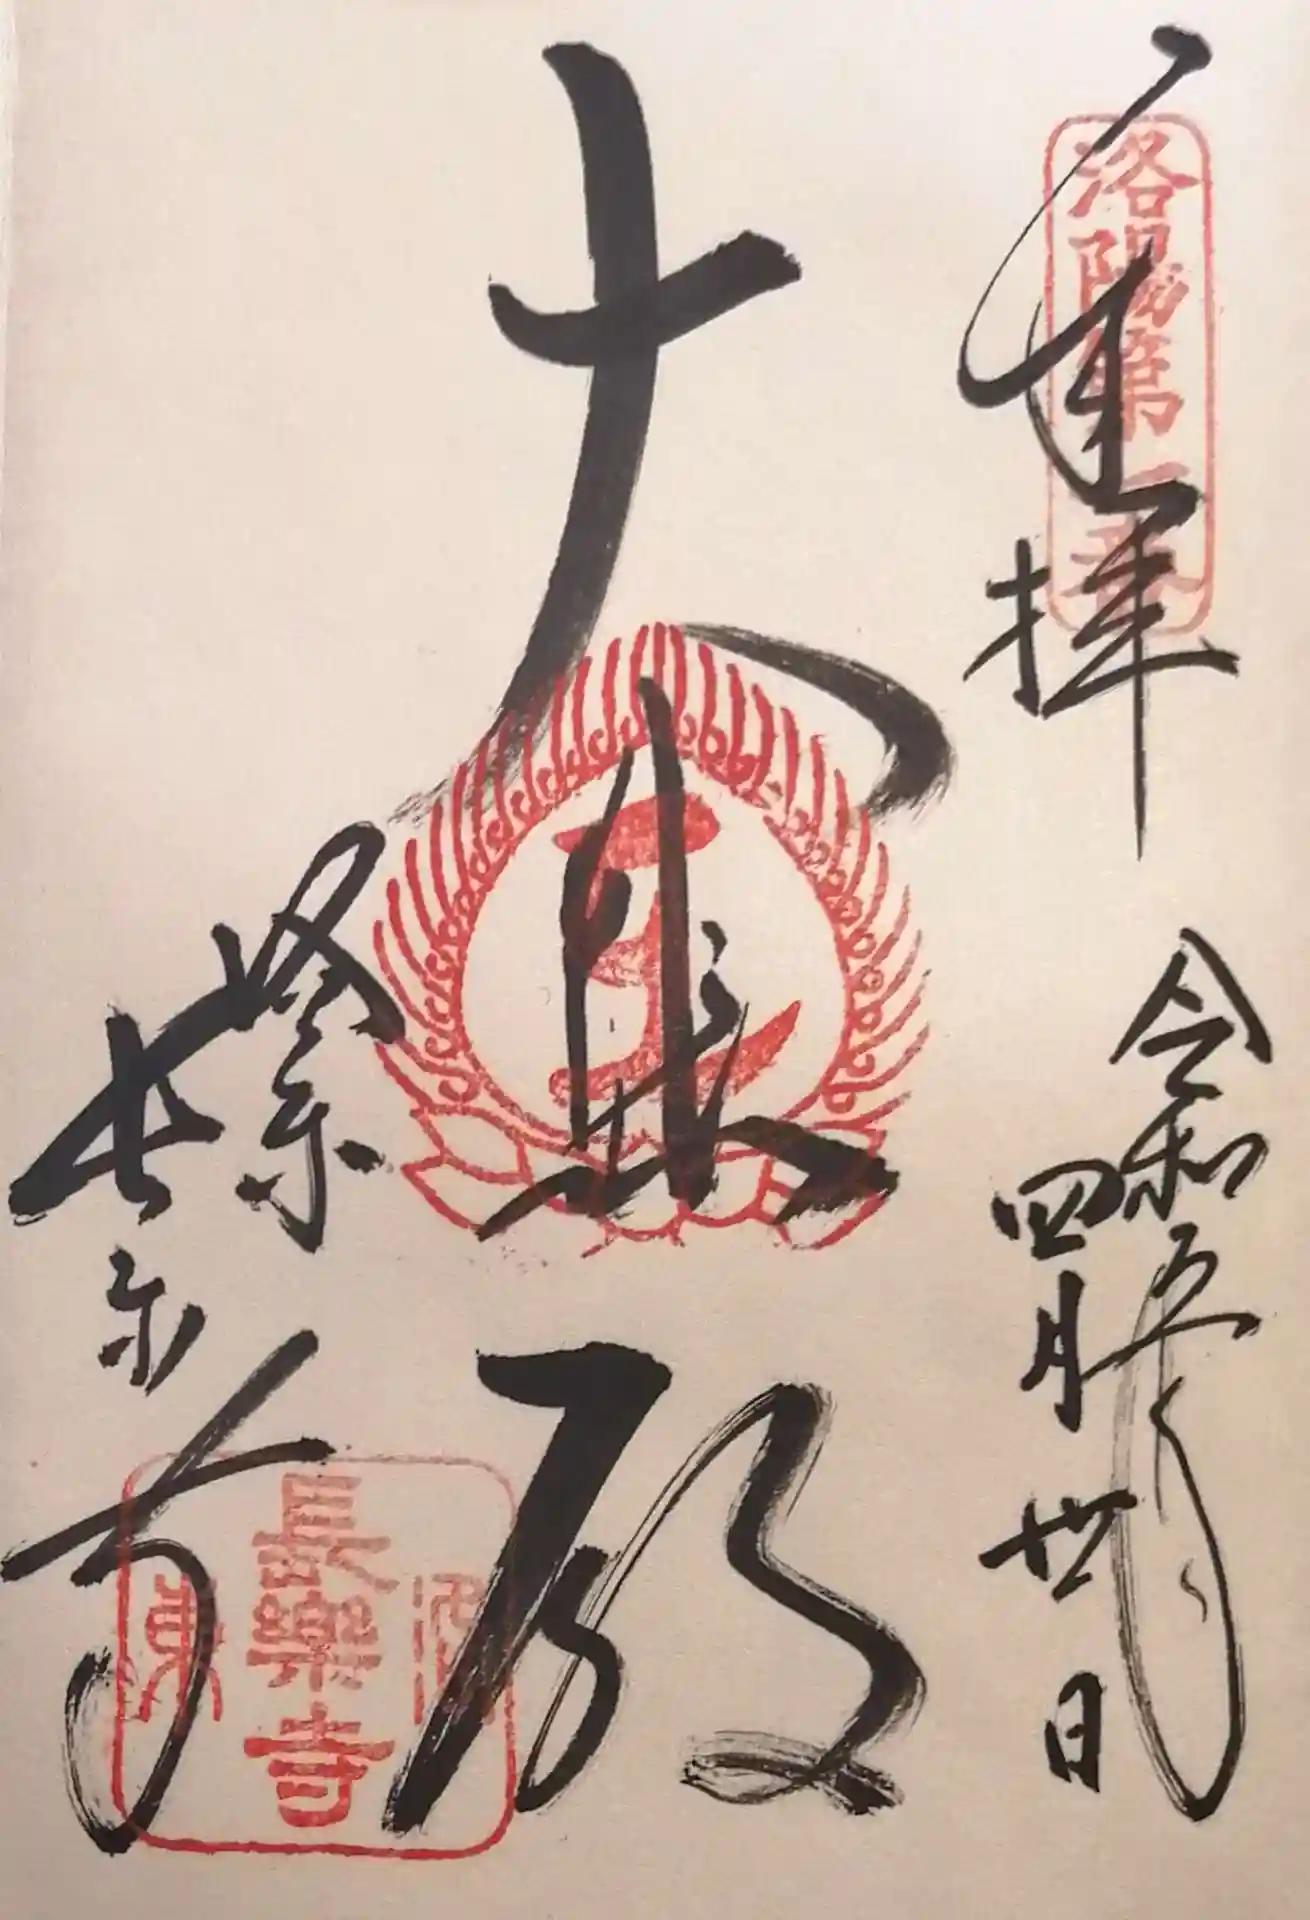 奉拝
洛陽第
番
令和五年
四月廿日
大悲殿
長樂寺
洛東
長樂寺